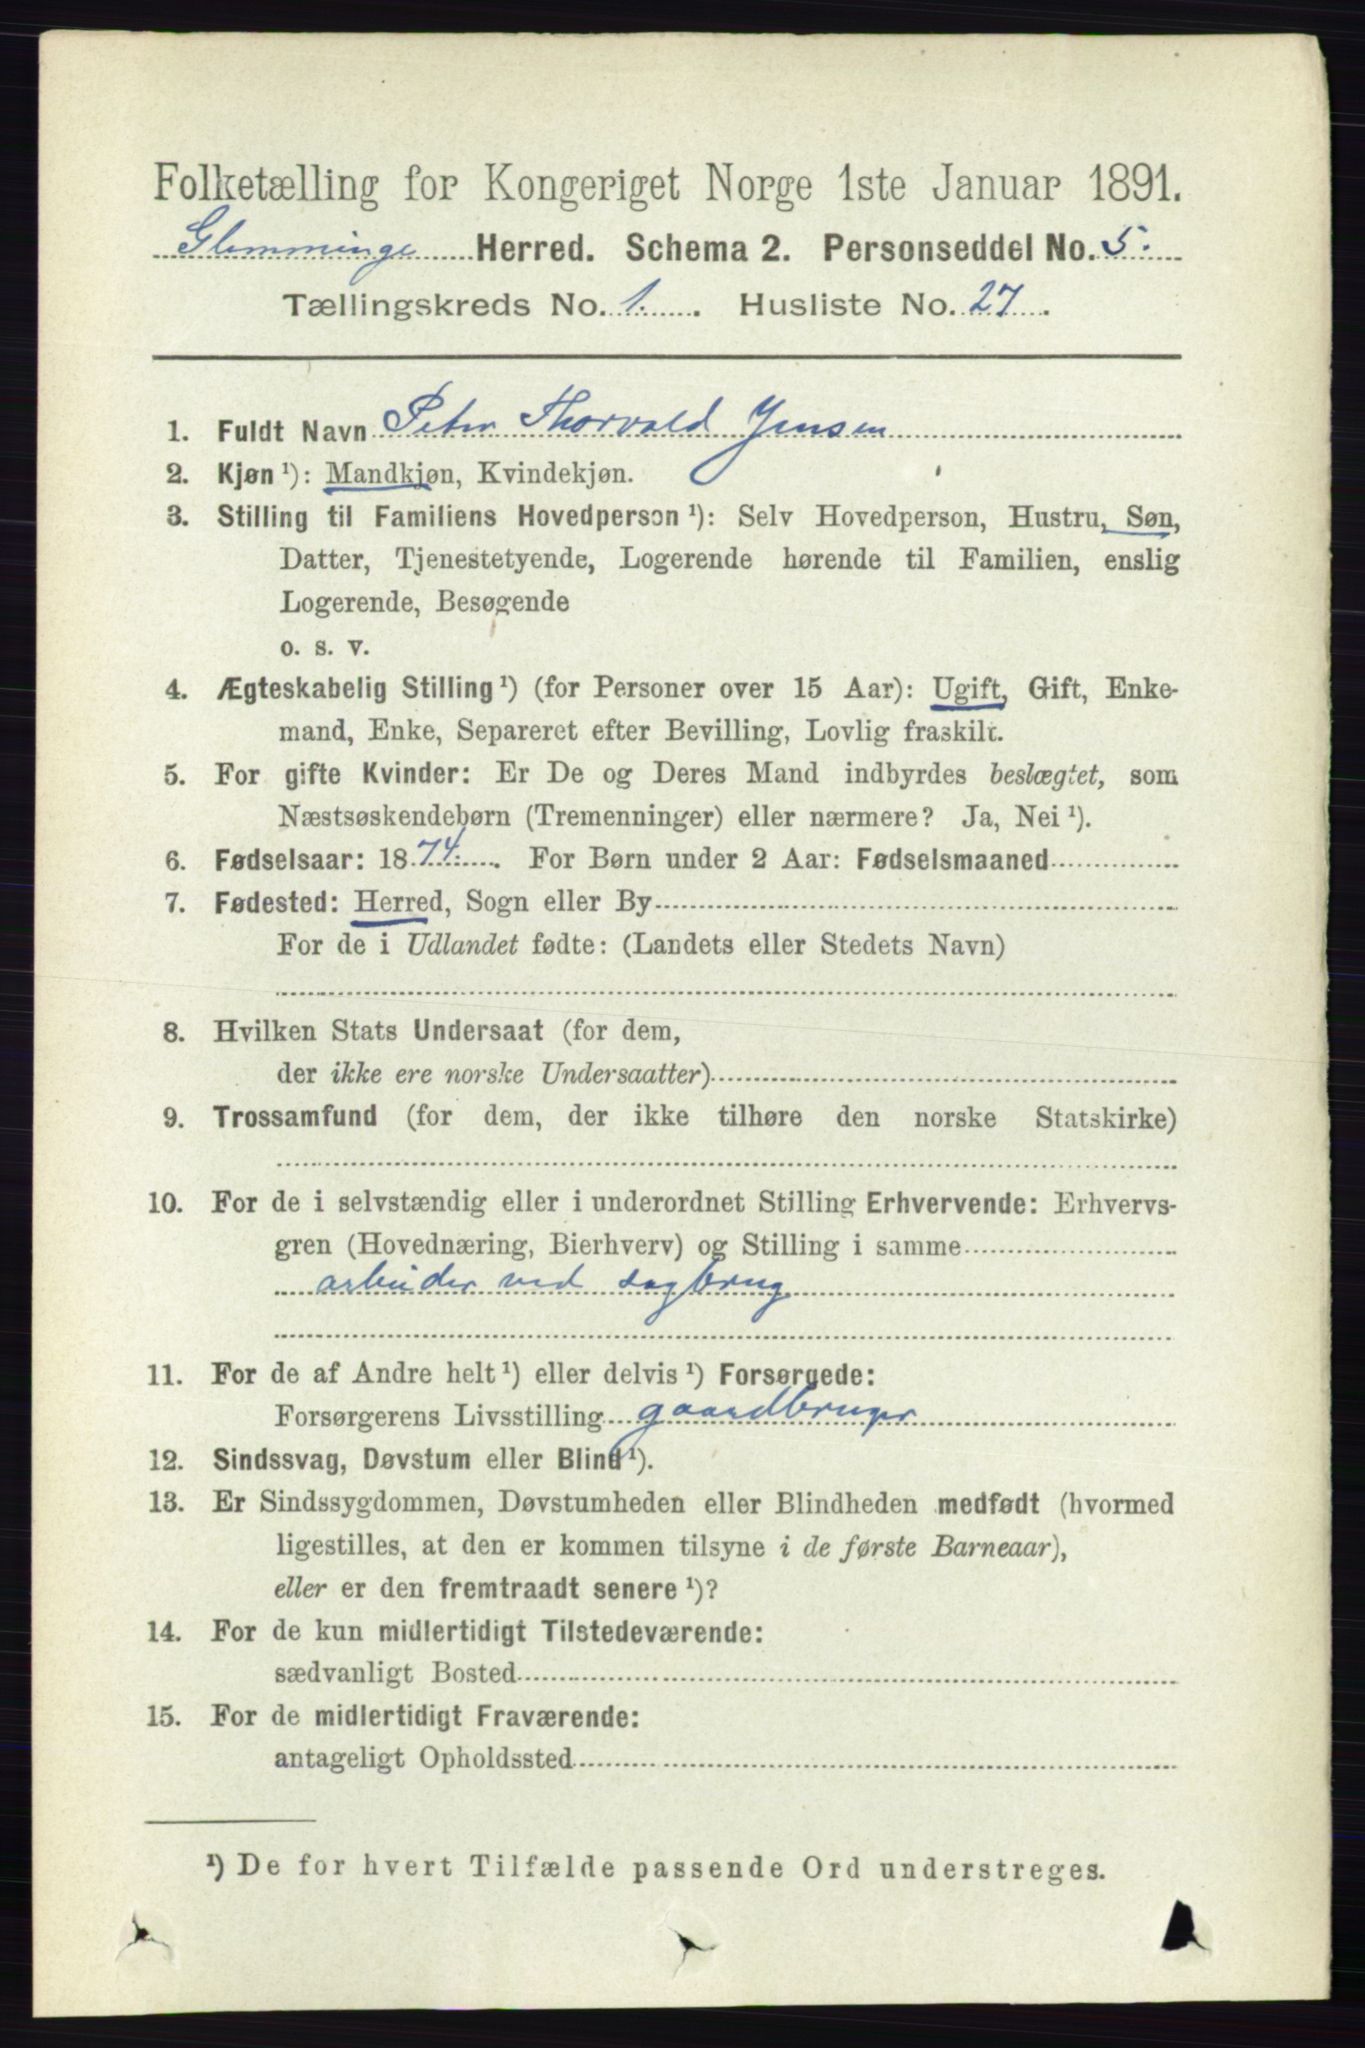 Folketælling for Kongeriget Norge 1ste Januar 1891.
Glemminge Herred. Schema 2. Personseddel No. 5.
Tællingskreds No. 1. Husliste No. 27.
1. Fuldt Navn Peter Thorvald Jensen
2. Kjøn ¹): Mandkjøn, Kvindekjøn.
3. Stilling til Familiens Hovedperson ¹): Selv Hovedperson, Hustru, Søn,
Datter, Tjenestetyende, Logerende hørende til Familien, enslig
Logerende, Besøgende
o. s. v.
4. Ægteskabelig Stilling ¹) (for Personer over 15 Aar): Ugift, Gift, Enke-
mand, Enke, Separeret efter Bevilling, Lovlig fraskilt.
5. For gifte Kvinder: Er De og Deres Mand indbyrdes beslægtet, som
Næstsøskendebørn (Tremenninger) eller nærmere? Ja, Nei ¹).
6. Fødselsaar: 1874. For Børn under 2 Aar: Fødselsmaaned
7. Fødested: Herred, Sogn eller By
For de i Udlandet fødte: (Landets eller Stedets Navn)
8. Hvilken Stats Undersaat (for dem,
der ikke ere norske Undersaatter)
9. Trossamfund (for dem, der ikke tilhøre den norske Statskirke)
10. For de i selvstændig eller i underordnet Stilling Erhvervende: Erhvervs-
gren (Hovednæring, Bierhverv) og Stilling i samme
arbeider ved sagbrug
11. For de af Andre helt ¹) eller delvis ¹) Forsørgede:
Forsørgerens Livsstilling gaardbruger
12. Sindssvag, Døvstum eller Blind ¹).
13. Er Sindssygdommen, Døvstumheden eller Blindheden medfødt (hvormed
ligestilles, at den er kommen tilsyne i de første Barneaar),
eller er den fremtraadt senere ¹)?
14. For de kun midlertidigt Tilstedeværende:
sædvanligt Bosted
15. For de midlertidigt Fraværende:
antageligt Opholdssted
¹) De for hvert Tilfælde passende Ord understreges.